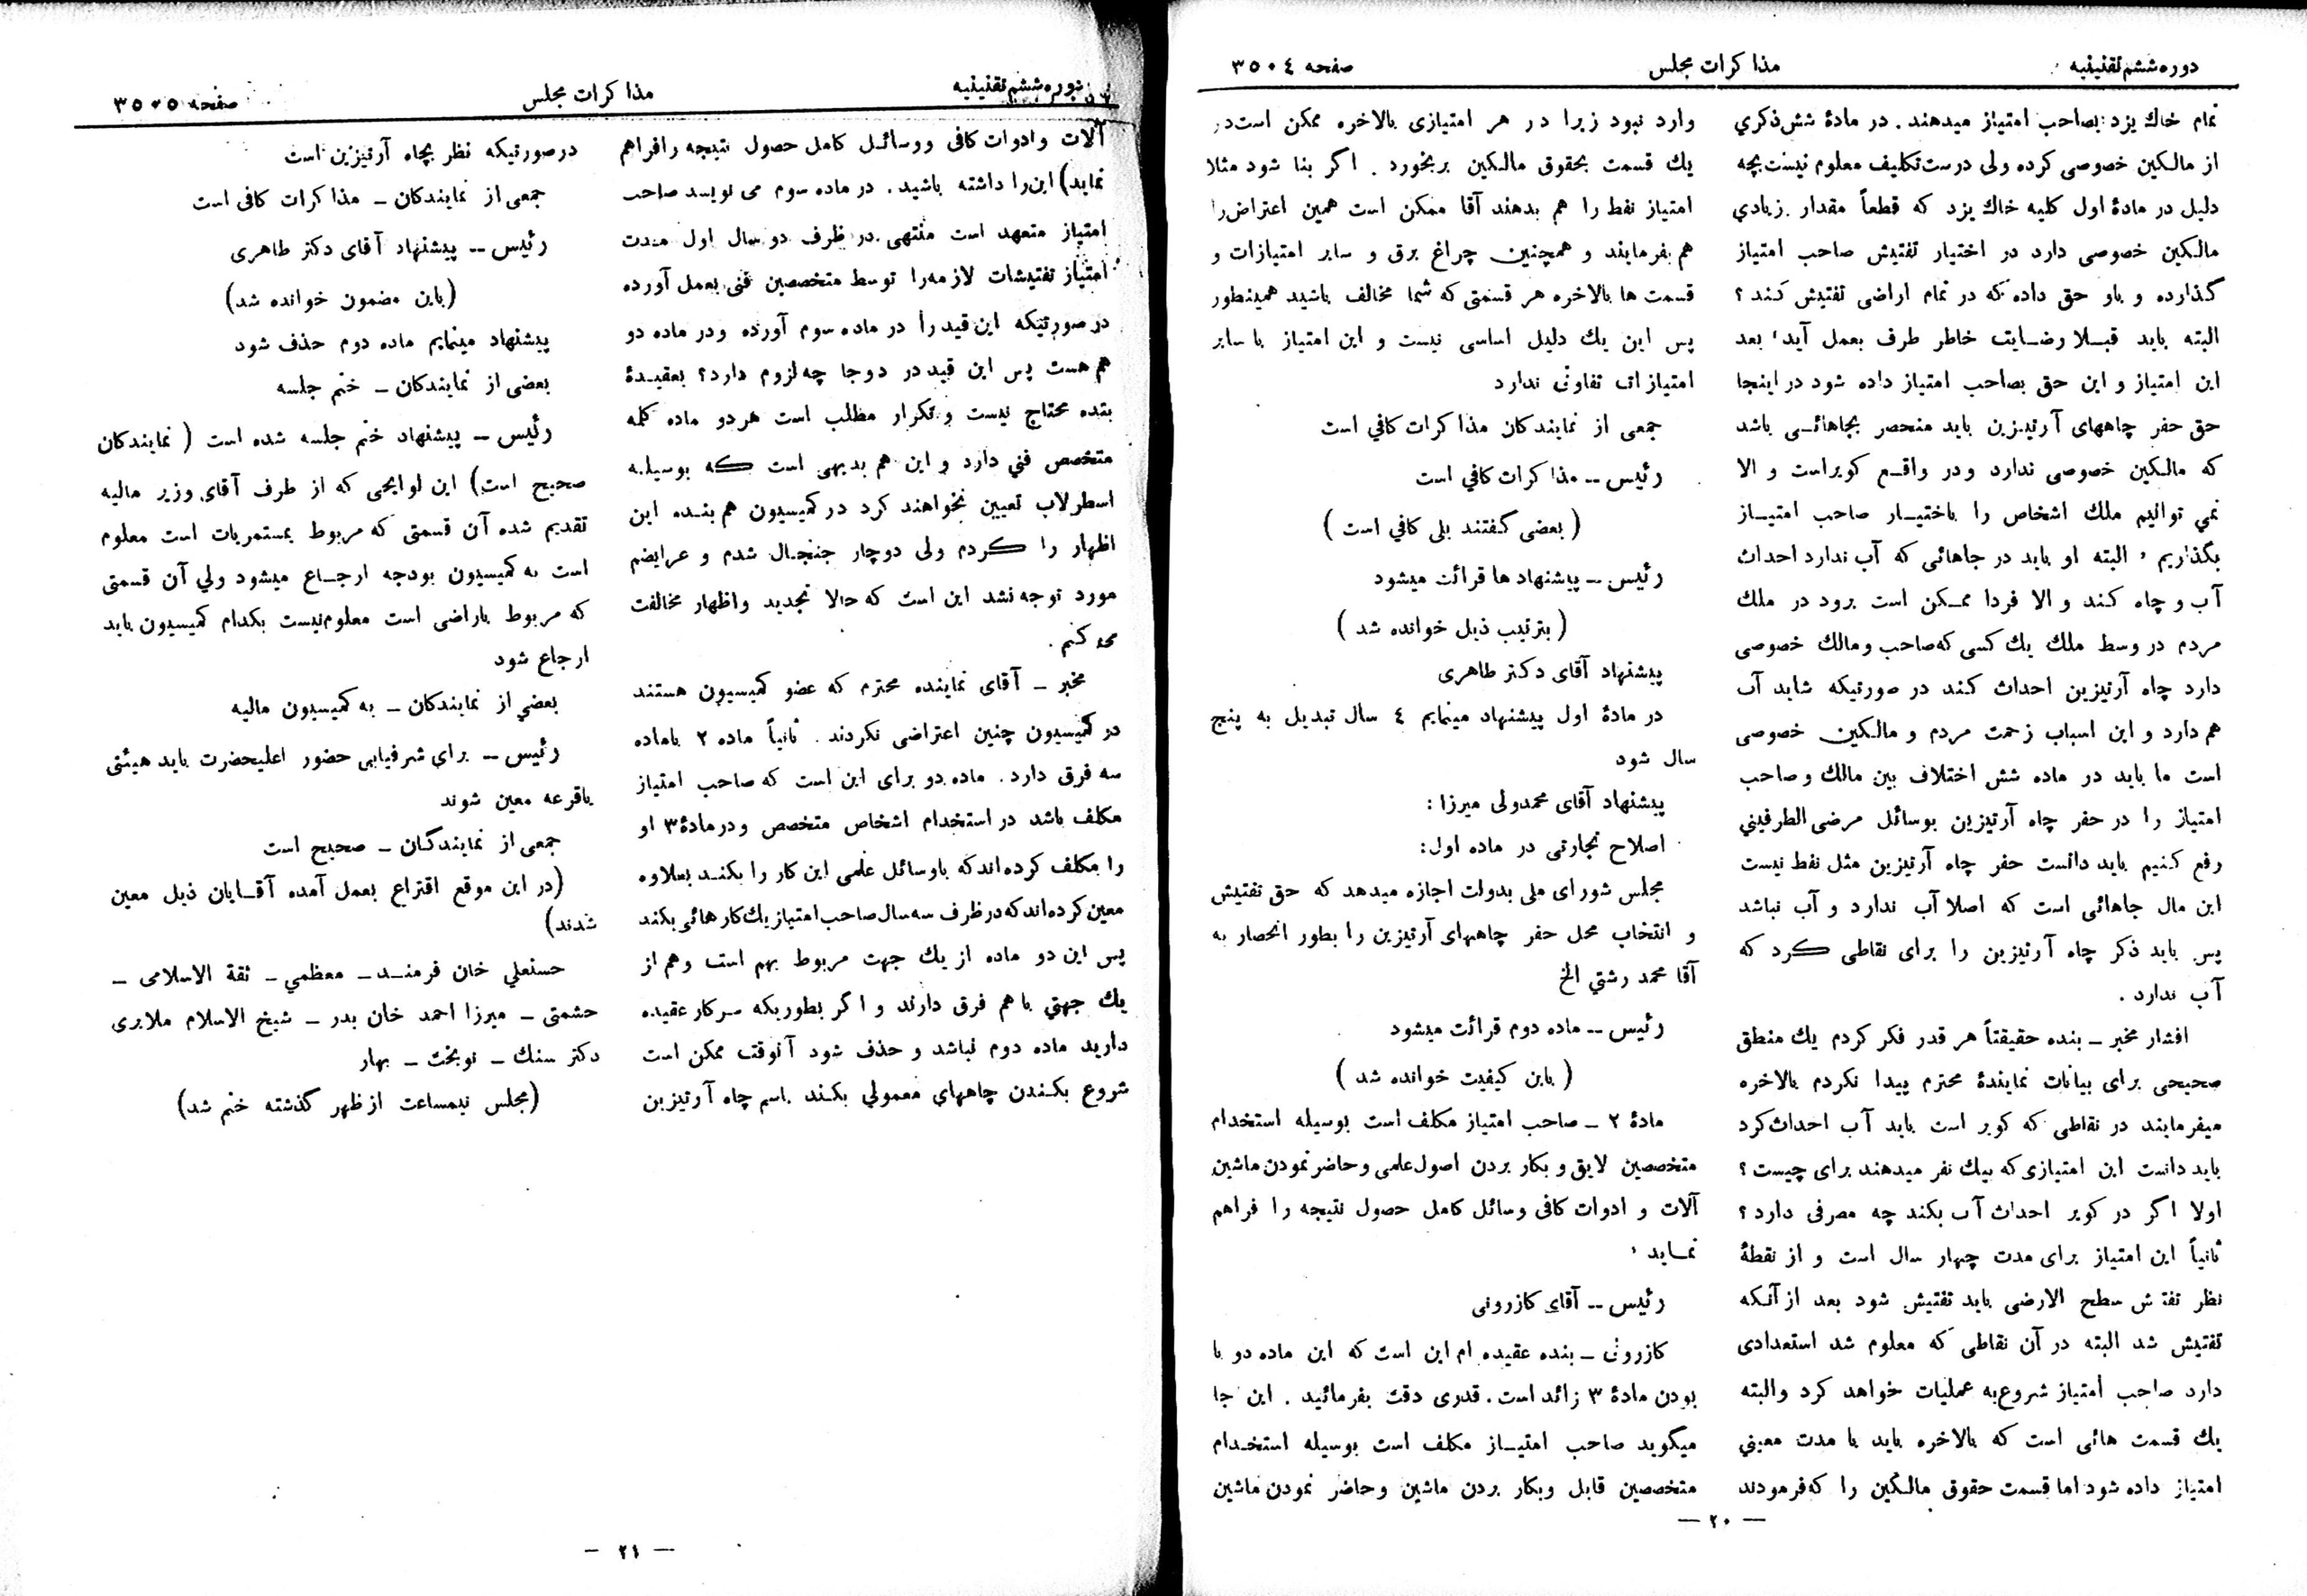 دوره ششم تقنینیه
مذاکرات مجلس
صفحه ۳۵۰٤
تمام خاك یزد بصاحب امتیاز میدهند. در مادهٔ شش ذکری
از مالکین خصوصی کرده ولی درست تکلیف معلوم نیست بچه
دلیل در مادهٔ اول کلیه خاك یزد که قطعاً مقدار زیادي
مالکین خصوصی دارد در اختیار تفتیش صاحب امتیاز
گذارده و باو حق داده که در تمام اراضی تفتیش کند ؟
البته باید قبلا رضایت خاطر طرف بعمل آید، بعد
این امتیاز و این حق بصاحب امتیاز داده شود در اینجا
حق حفر چاههای آرتیزین باید منحصر بجاهائی باشد
که مالکین خصوصی ندارد ودر واقع کویر است و الا
نمي توانیم ملك اشخاص را باختیار صاحب امتیاز
بگذاریم ، البته او باید در جاهائی که آب ندارد احداث
آب و چاه کند و الا فردا ممکن است برود در ملك
مردم در وسط ملك یك کسی که صاحب ومالك خصوصی
دارد چاه آرتیزین احداث کند در صورتیکه شاید آب
هم دارد و این اسباب زحمت مردم و مالکین خصوصی
است ما باید در ماده شش اختلاف بین مالك وصاحب
امتیاز را در حفر چاه آرتیزین بوسائل مرضی الطرفینی
رفع کنیم باید دانست حفر چاه آرتیزین مثل نفط نیست
این مال جاهائی است که اصلا آب ندارد و آب نباشد
پس باید ذکر چاه آرتیزین را برای نقاطی کرد که
آب ندارد .
افشار مخبر ـ بنده حقیقتاً هر قدر فکر کردم یك منطق
صحیحی برای بیانات نمایندهٔ محترم پیدا نکردم بالاخره
میفرمایند در نقاطی که کویر است باید آب احداث کرد
باید دانست این امتیازی که بیك نفر میدهند برای چیست ؟
اولا اگر در کویر احداث آب بکند چه مصرفی دارد ؟
ثانیاً این امتیاز برای مدت چهار سال است و از نقطهٔ
نظر تفتش سطح الارضی باید تفتیش شود بعد از آنکه
تفتیش شد البته در آن نقاطی که معلوم شد استعدادی
دارد صاحب امتیاز شروع به عملیات خواهد کرد والبته
یك قسمت هائی است که بالاخره باید با مدت معینی
امتیاز داده شود اما قسمت حقوق مالکین را که فرمودند
وارد نبود زیرا در هر امتیازی بالاخره ممکن است در
یك قسمت بحقوق مالکین بربخورد . اگر بنا شود مثلا
امتیاز نفط را هم بدهند آقا ممکن است همین اعتراض را
هم بفرمایند و همچنین چراغ برق و سایر امتیازات و
قسمت ها بالاخره هر قسمتی که شما مخالف باشید همینطور
پس این یك دلیل اساسی نیست و این امتیاز با سایر
امتیازات تفاوتی ندارد
جمعی از نمایندکان مذاکرات کافي است
رئیس ــ مذاکرات کافي است
( بعضی گفتند بلی کافي است )
رئیس ــ پیشنهاد ها قرائت میشود
( بترتیب ذیل خوانده شد )
پیشنهاد آقای دکتر طاهری
در مادهٔ اول پیشنهاد مینمایم ٤ سال تبدیل به پنج
سال شود
پیشنهاد آقای محمدولی میرزا :
اصلاح تجارتی در ماده اول:
مجلس شورای ملی بدولت اجازه میدهد که حق تفتیش
و انتخاب محل حفر چاههای آرتیزین را بطور انحصار به
آقا محمد رشتي الخ
رئیس ــ ماده دوم قرائت میشود
( باین کیفیت خوانده شد )
مادهٔ ۲ ـ صاحب امتیاز مکلف است بوسیله استخدام
متخصصین لایق و بکار بردن اصول علمی وحاضر نمودن ماشین
آلات و ادوات کافی وسائل کامل حصول نتیجه را فراهم
نماید ،
رئیس ــ آقای کازرونی
کازرونی ـ بنده عقیده ام این است که این ماده دو با
بودن مادهٔ ۳ زائد است. قدری دقت بفرمائید . این جا
میگوید صاحب امتیاز مکلف است بوسیله استخدام
متخصصین قابل وبکار بردن ماشین وحاضر نمودن ماشین
— ۲۰ —
دوره ششم تقنینیه
مذاکرات مجلس
صفحه ۳۵۰۵
آلات وادوات کافی ووسائل کامل حصول نتیجه رافراهم
نماید) این را داشته باشید. در ماده سوم می نویسد صاحب
امتیاز متعهد است منتهی در ظرف دو سال اول مدت
امتیاز تفتیشات لازمه را توسط متخصصین فنی بعمل آورده
در صورتیکه این قید را در ماده سوم آورده ودر ماده دو
هم هست پس این قید در دوجا چه لزوم دارد؟ بعقیدهٔ
بنده محتاج نیست و تکرار مطلب است هردو ماده کلمه
متخصص فني دارد و این هم بدیهی است که بوسیله
اسطرلاب تعیین نخواهند کرد در کمیسیون هم بنده این
اظهار را کردم ولی دوچار جنجال شدم و عرایضم
مورد توجه نشد این است که حالا تجدید واظهار مخالفت
می کنم .
مخبر ـ آقای نماینده محترم که عضو کمیسیون هستند
در کمیسیون چنین اعتراضی نکردند. ثانیاً ماده ۲ باماده
سه فرق دارد. ماده دو برای این است که صاحب امتیاز
مکلف باشد در استخدام اشخاص متخصص ودر مادهٔ ۳ او
را مکلف کرده اند که باوسائل علمی این کار را بکند بعلاوه
معین کرده اند که در ظرف سه سال صاحب امتیاز یك کارهائی بکند
پس این دو ماده از یك جهت مربوط بهم است وهم از
یك جهتي باهم فرق دارند و اگر بطوریکه سرکار عقیده
دارید ماده دوم نباشد و حذف شود آنوقت ممکن است
شروع بکندن چاههاي معمولي بکند باسم چاه آرتیزین
درصورتیکه نظر بچاه آرتیزین است
جمعی از نمایندکان ـ مذاکرات کافی است
رئیس ــ پیشنهاد آقای دکتر طاهری
(باین مضمون خوانده شد)
پیشنهاد مینمایم ماده دوم حذف شود
بعضی از نمایندکان ـ ختم جلسه
رئیس ــ پیشنهاد ختم جلسه شده است ( نمایندکان
صحیح است) این لوایحی که از طرف آقای وزیر مالیه
تقدیم شده آن قسمتی که مربوط بمستمریات است معلوم
است به کمیسیون بودجه ارجاع میشود ولي آن قسمتی
که مربوط باراضی است معلوم نیست بکدام کمیسیون باید
ارجاع شود
بعضي از نمایندکان ـ به کمیسیون مالیه
رئیس ــ براي شرفیابی حضور اعلیحضرت باید هیئتی
باقرعه معین شوند
جمعی از نمایندکان ـ صحیح است
(در این موقع اقتراع بعمل آمده آقایان ذیل معین
شدند)
حسنعلي خان فرمند ـ معظمي ـ ثقة الاسلامی ـ
حشمتی ـ میرزا احمد خان بدر ـ شیخ الاسلام ملایری
دکتر سنك ـ نوبخت ـ بهار
(مجلس نیمساعت از ظهر گذشته ختم شد)
— ۲۱ —